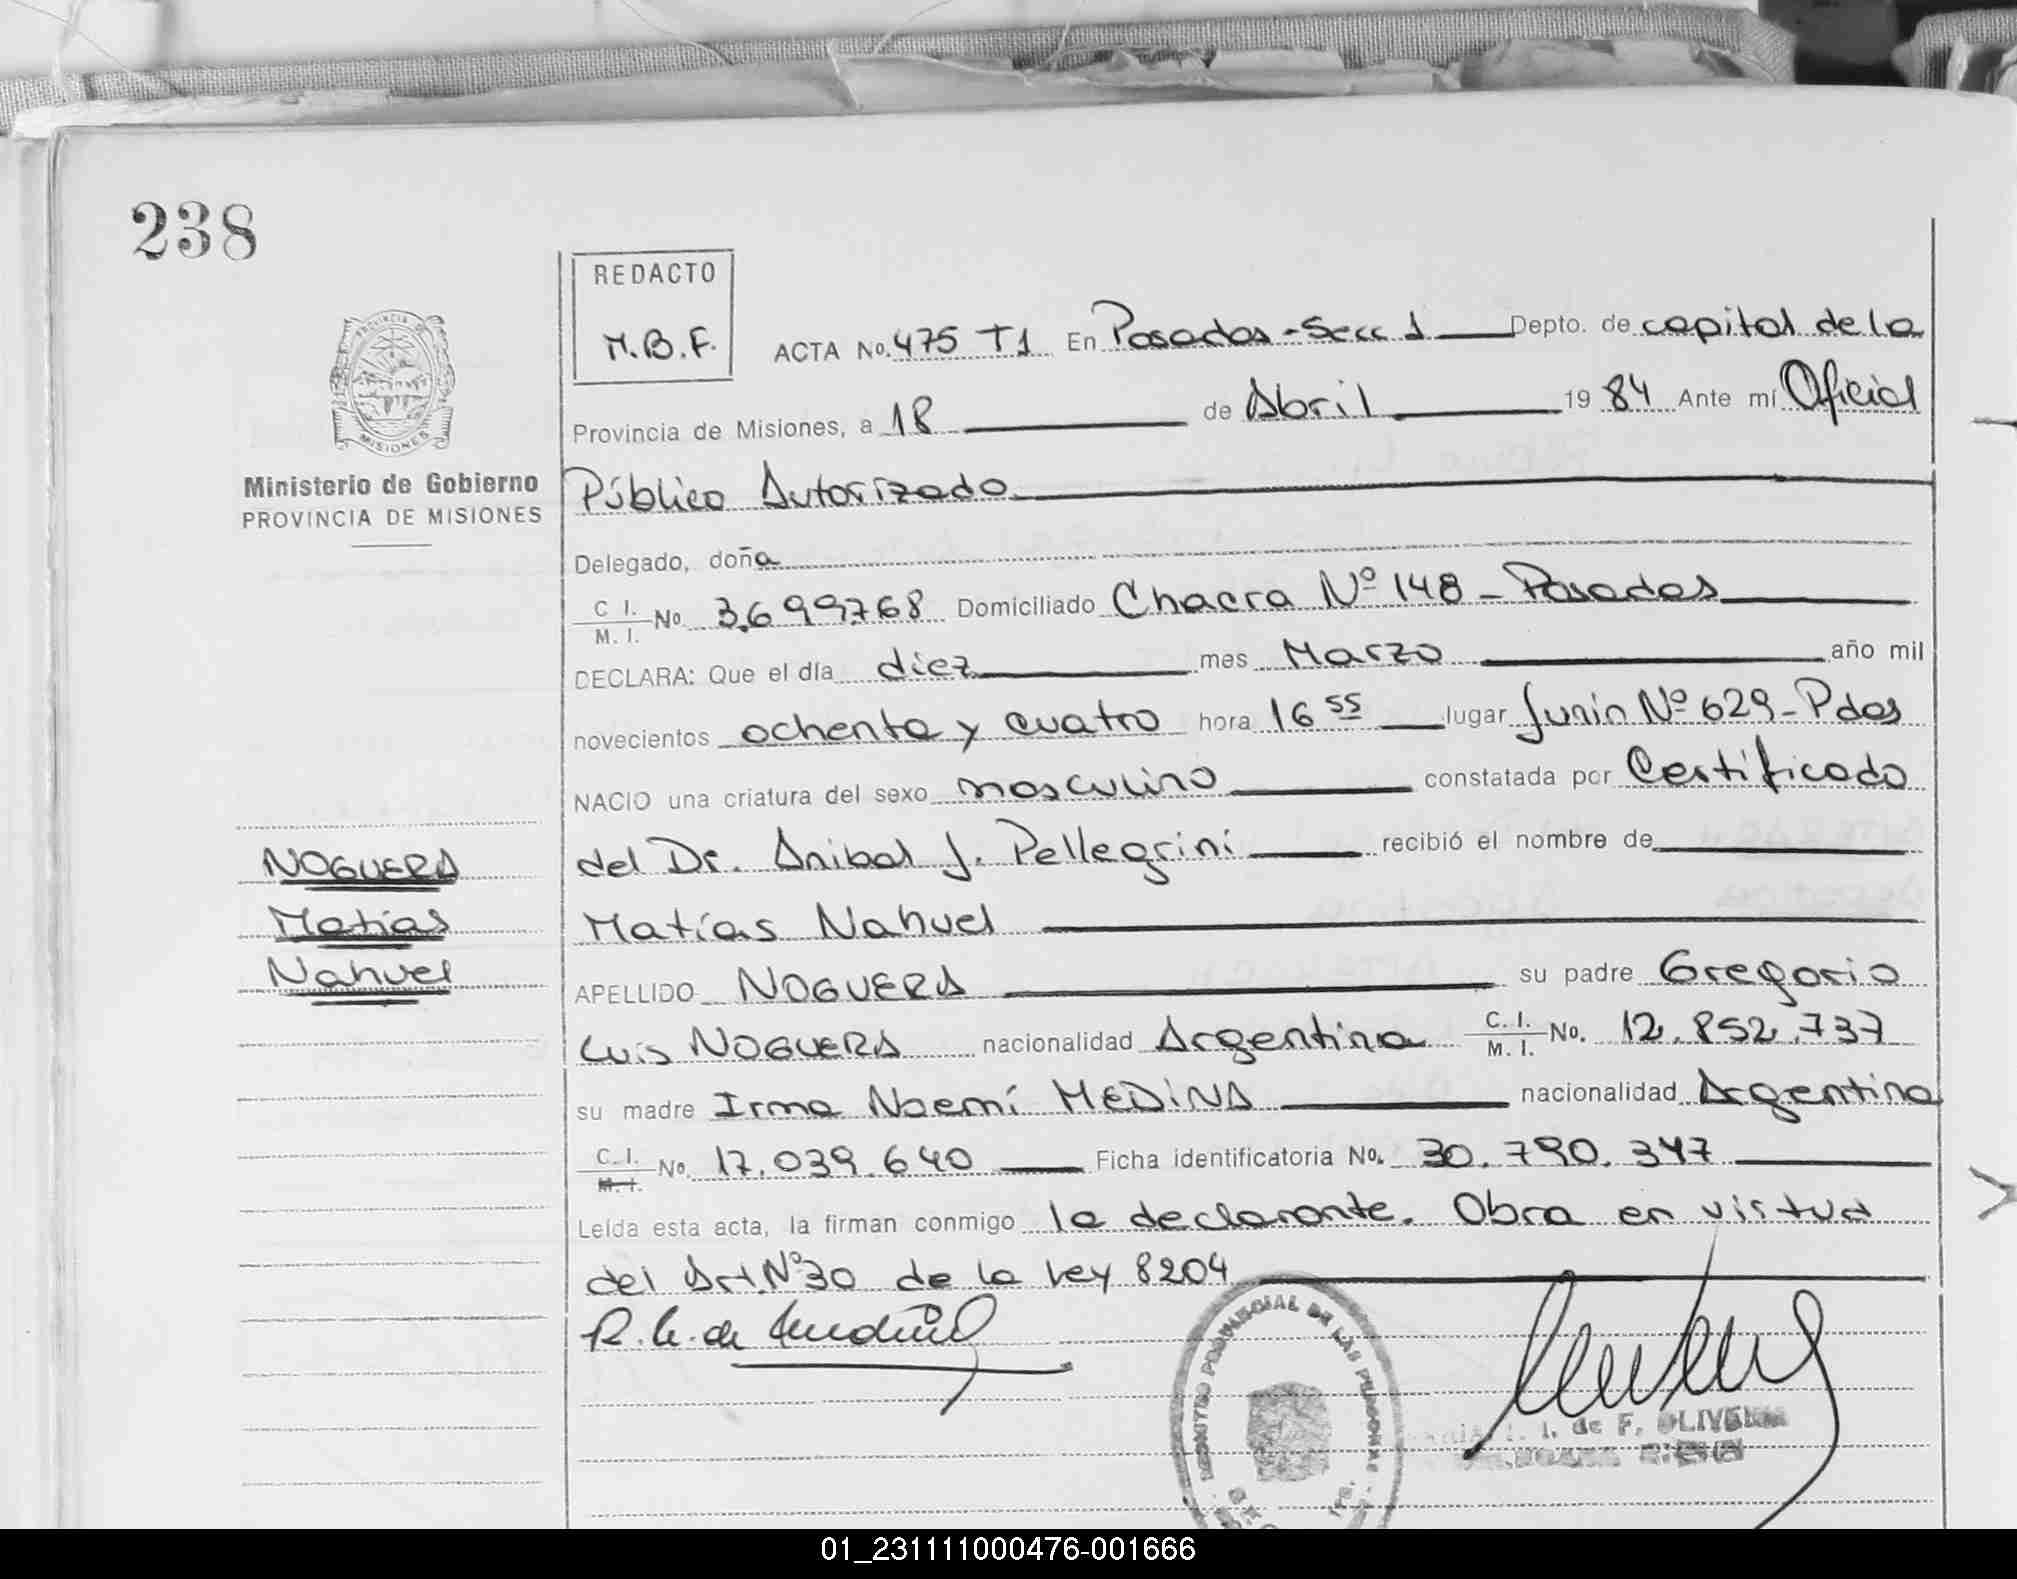 238
REDACTO
M.B.F.
PROVINCIA DE
MISIONES
Ministerio de Gobierno
PROVINCIA DE MISIONES
ACTA No. 475 T1 En Posadas - Secc 1 Depto. de capital de la
Provincia de Misiones, a 18 de Abril 19 84 Ante mí Oficial
Público Autorizado
Delegado, doña
C. I. / M. I. No 3.699.768 Domiciliado Chacra Nº 148 - Posadas
DECLARA: Que el día diez mes Marzo año mil
novecientos ochenta y cuatro hora 16 55 lugar Junin Nº 629 - Pdas
NACIO una criatura del sexo masculino constatada por Certificado
del Dr. Anibal J. Pellegrini recibió el nombre de
NOGUERA
Matías
Nahuel
Matías Nahuel
APELLIDO NOGUERA su padre Gregorio
Luis NOGUERA nacionalidad Argentina C. I. / M. I. No. 12.852.737
su madre Irma Noemí MEDINA nacionalidad Argentina
C. I. / M. I. No. 17.039.640 Ficha identificatoria No. 30.790.347
Leída esta acta, la firman conmigo la declarante. Obra en virtud
del Art. Nº 30 de la Ley 8204
R. G. de
PROVINCIAL DE LAS PERSONAS
I. de F. OLIVEIRA
01_231111000476-001666